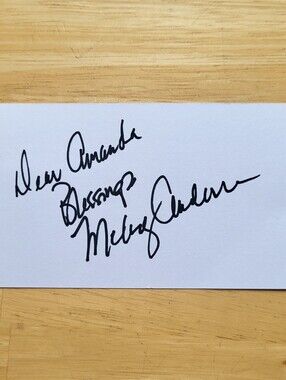 Dear Amanda
Blessings
Melody Anderson